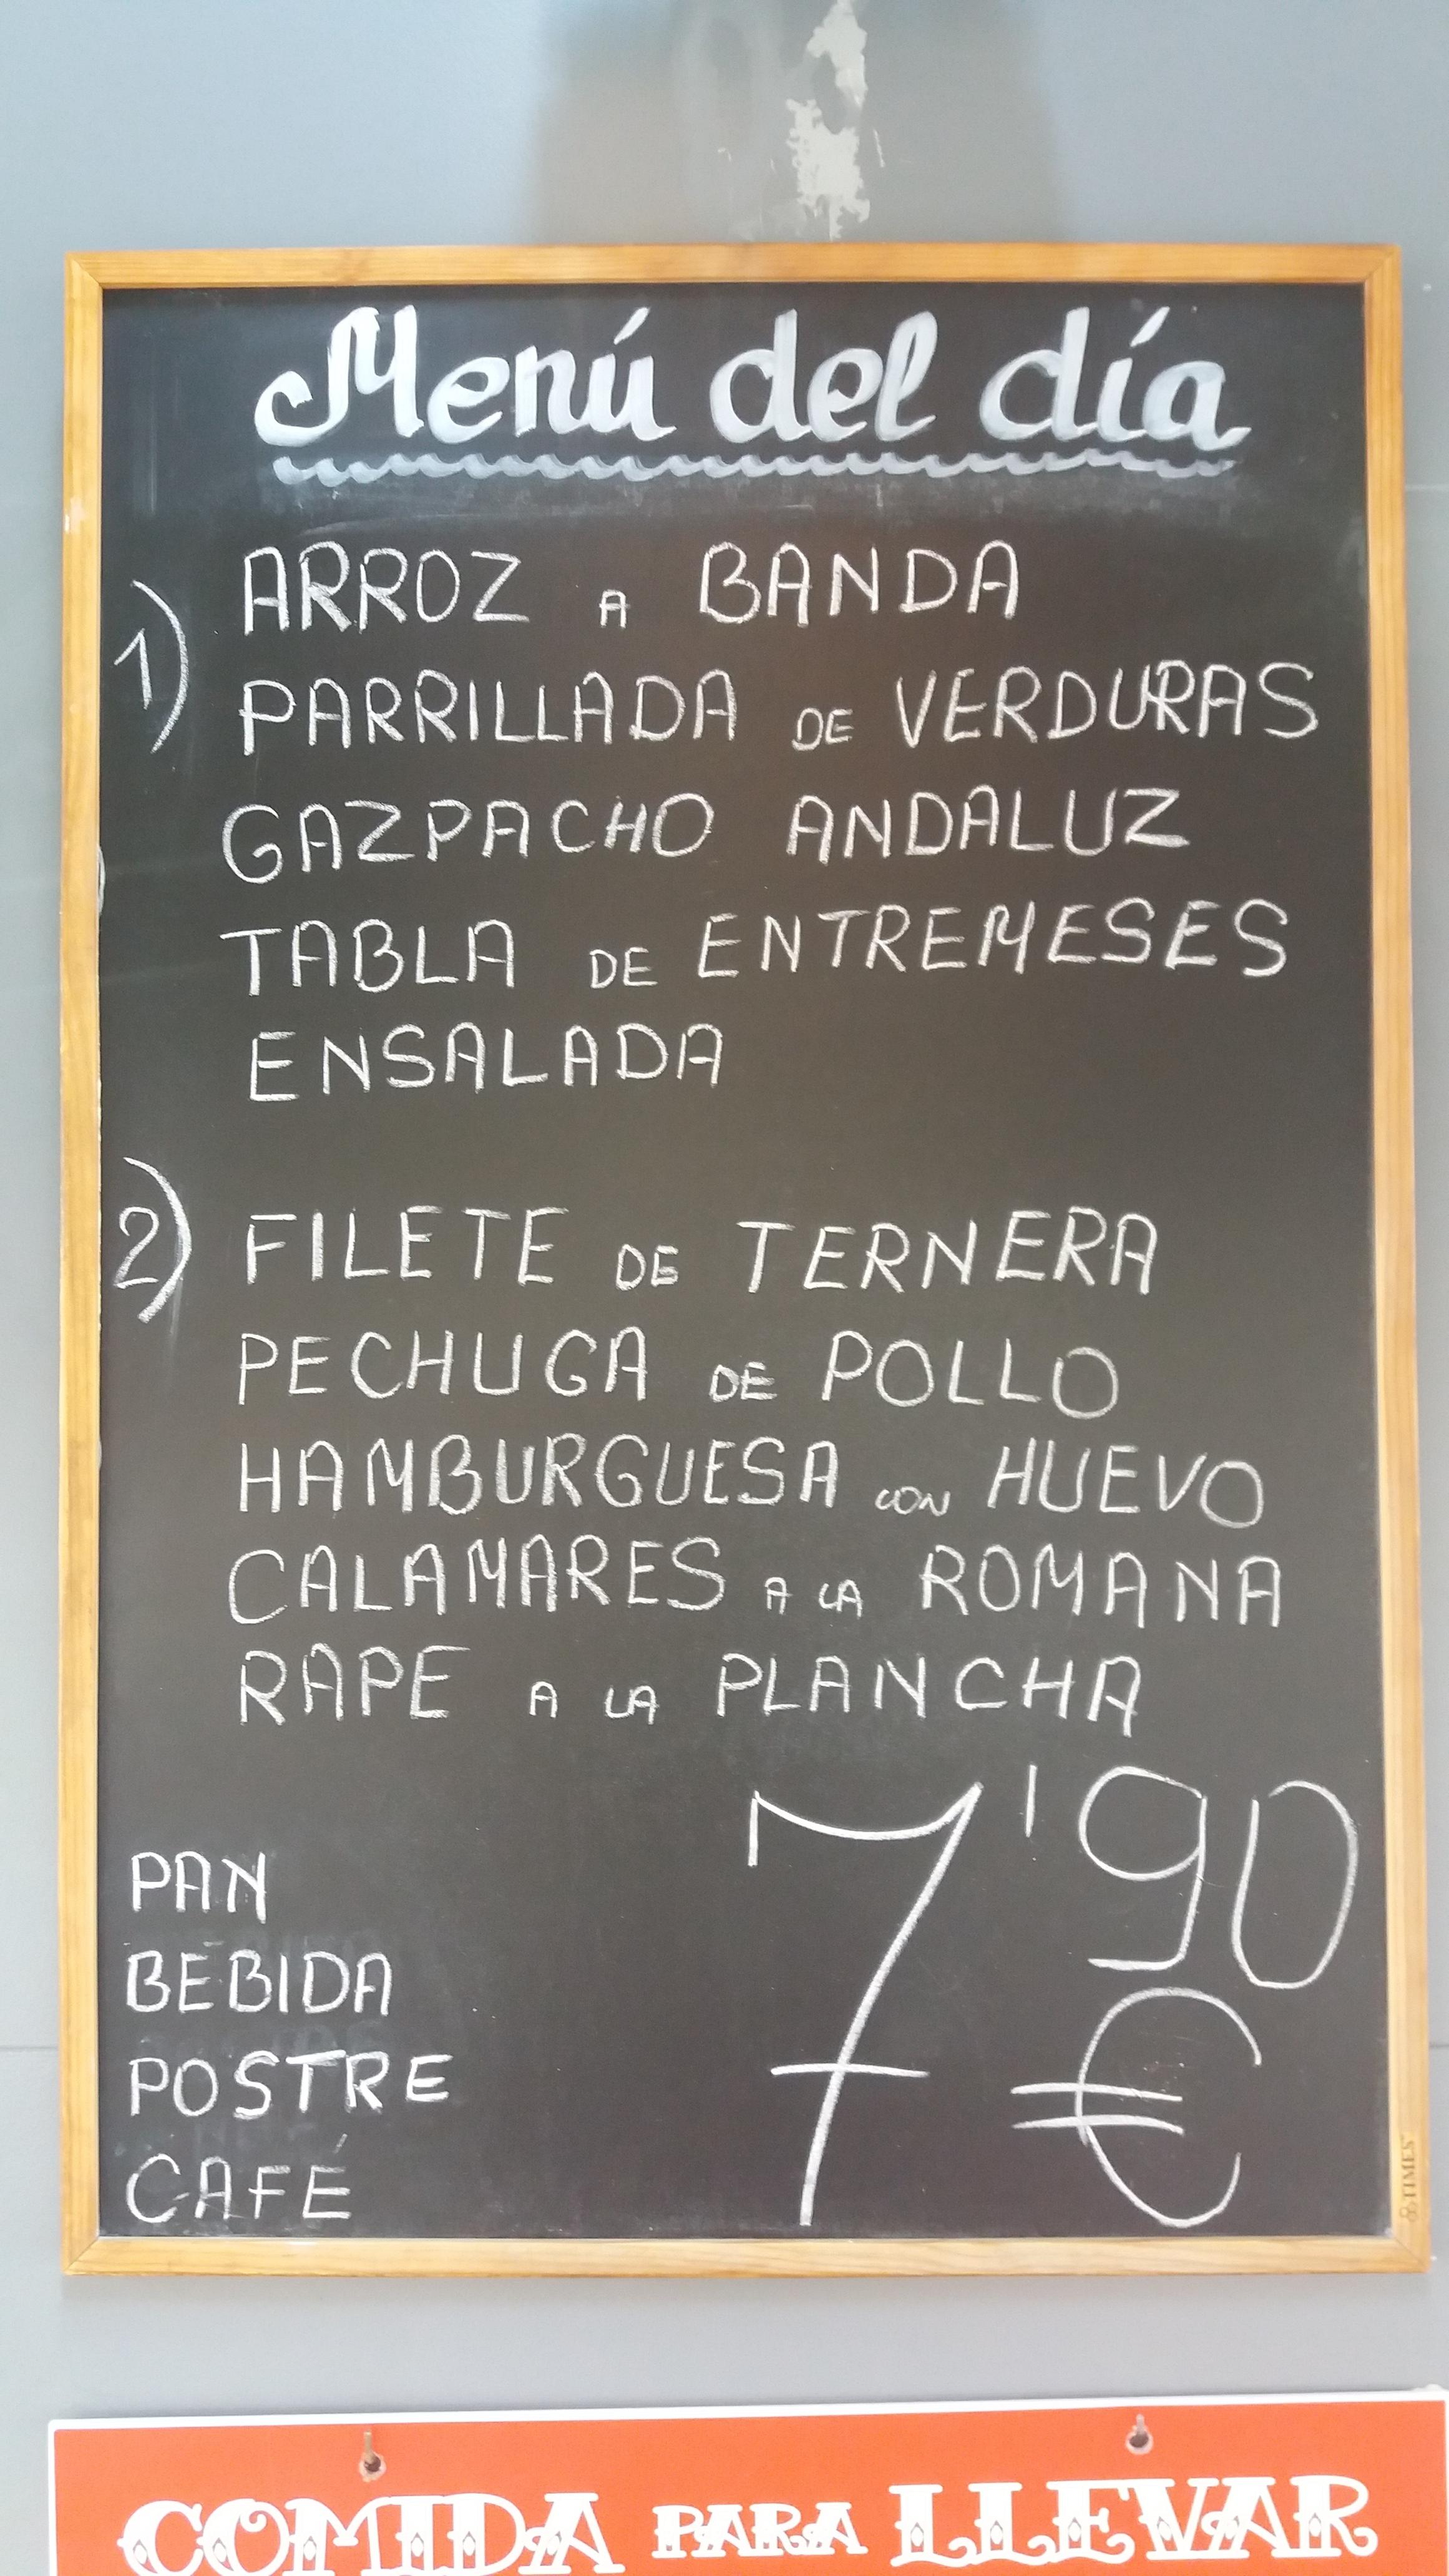 Menú del día
1) ARROZ A BANDA
PARRILLADA DE VERDURAS
GAZPACHO ANDALUZ
TABLA DE ENTREMESES
ENSALADA
2) FILETE DE TERNERA
PECHUGA DE POLLO
HAMBURGUESA CON HUEVO
CALAMARES A LA ROMANA
RAPE A LA PLANCHA
7'90
€
PAN
BEBIDA
POSTRE
CAFÉ
TIMES
COMIDA PARA LLEVAR